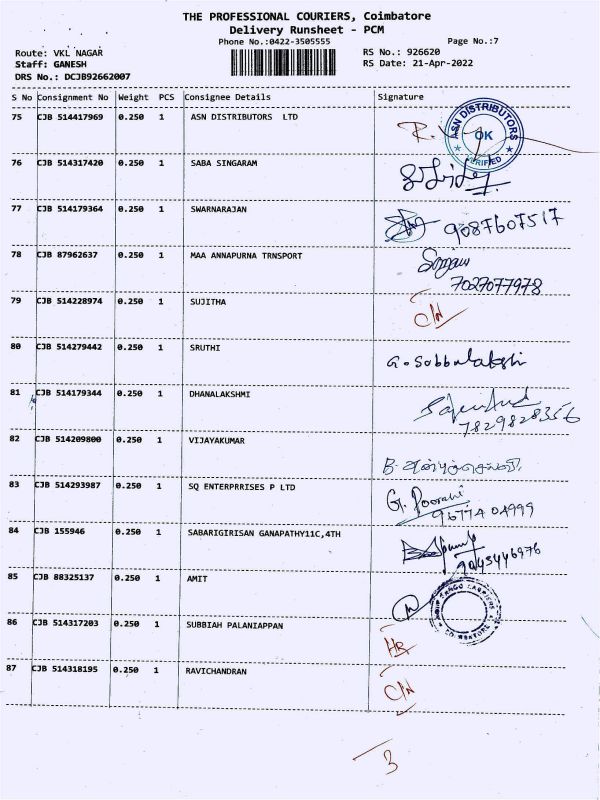 THE PROFESSIONAL COURIERS, Coimbatore
Delivery Runsheet - PCM
Phone No.:0422-3505555
Page No.:7
Route: VKL NAGAR
RS No.: 926620
Staff: GANESH
RS Date: 21-Apr-2022
DRS No.: DCJB92662007
S No Consignment No Weight PCS Consignee Details Signature
75 CJB 514417969 0.250 1 ASN DISTRIBUTORS LTD
ASN DISTRIBUTORS
OK
VERIFIED
76 CJB 514317420 0.250 1 SABA SINGARAM
77 CJB 514179364 0.250 1 SWARNARAJAN
9087607517
78 CJB 87962637 0.250 1 MAA ANNAPURNA TRNSPORT
7027077978
79 CJB 514228974 0.250 1 SUJITHA
C/N
80 CJB 514279442 0.250 1 SRUTHI
G. Sabbulakshi
81 CJB 514179344 0.250 1 DHANALAKSHMI
7829828356
82 CJB 514209800 0.250 1 VIJAYAKUMAR
83 CJB 514293987 0.250 1 SQ ENTERPRRISES P LTD
G. Poorani
96774 04999
84 CJB 155946 0.250 1 SABARIGIRISAN GANAPATHY11C,4TH
9045446976
85 CJB 88325137 0.250 1 AMIT
86 CJB 514317203 0.250 1 SUBBIAH PALANIAPPAN
HR
87 CJB 514318195 0.250 1 RAVICHANDRAN
C/N
3